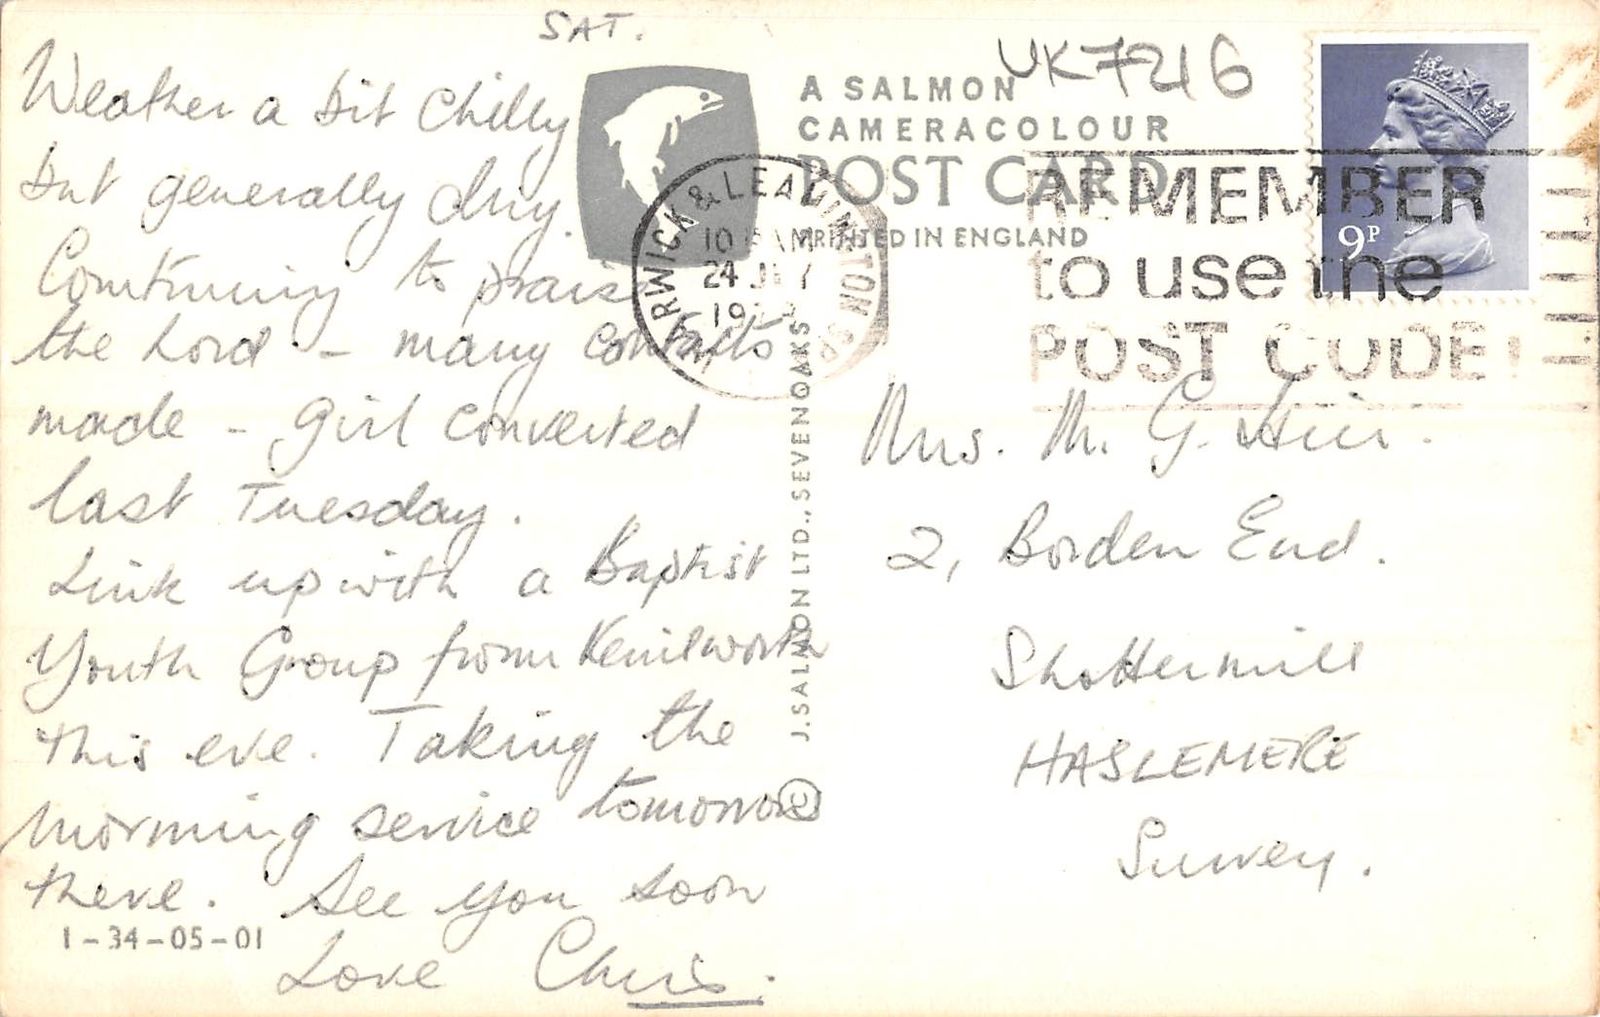 SAT.
Weather a bit chilly
but generally dry.
Continuing to praise
the Lord - many contacts
made - girl converted
last Tuesday.
Link up with a Baptist
Youth Group from Kenilworth
this eve. Taking the
morning service tomorrow
there. See you soon
Love Chris.
1-34-05-01
UK7216
A SALMON
CAMERACOLOUR
POST CARD
PRINTED IN ENGLAND
J. SALMON LTD., SEVENOAKS ©
WARWICK & LEAMINGTON SPA
10 AM
24
19
REMEMBER
to use the
POST CODE!
9P
Mrs. M. G.
2, Borden End.
Shottermill
HASLEMERE
Surrey.